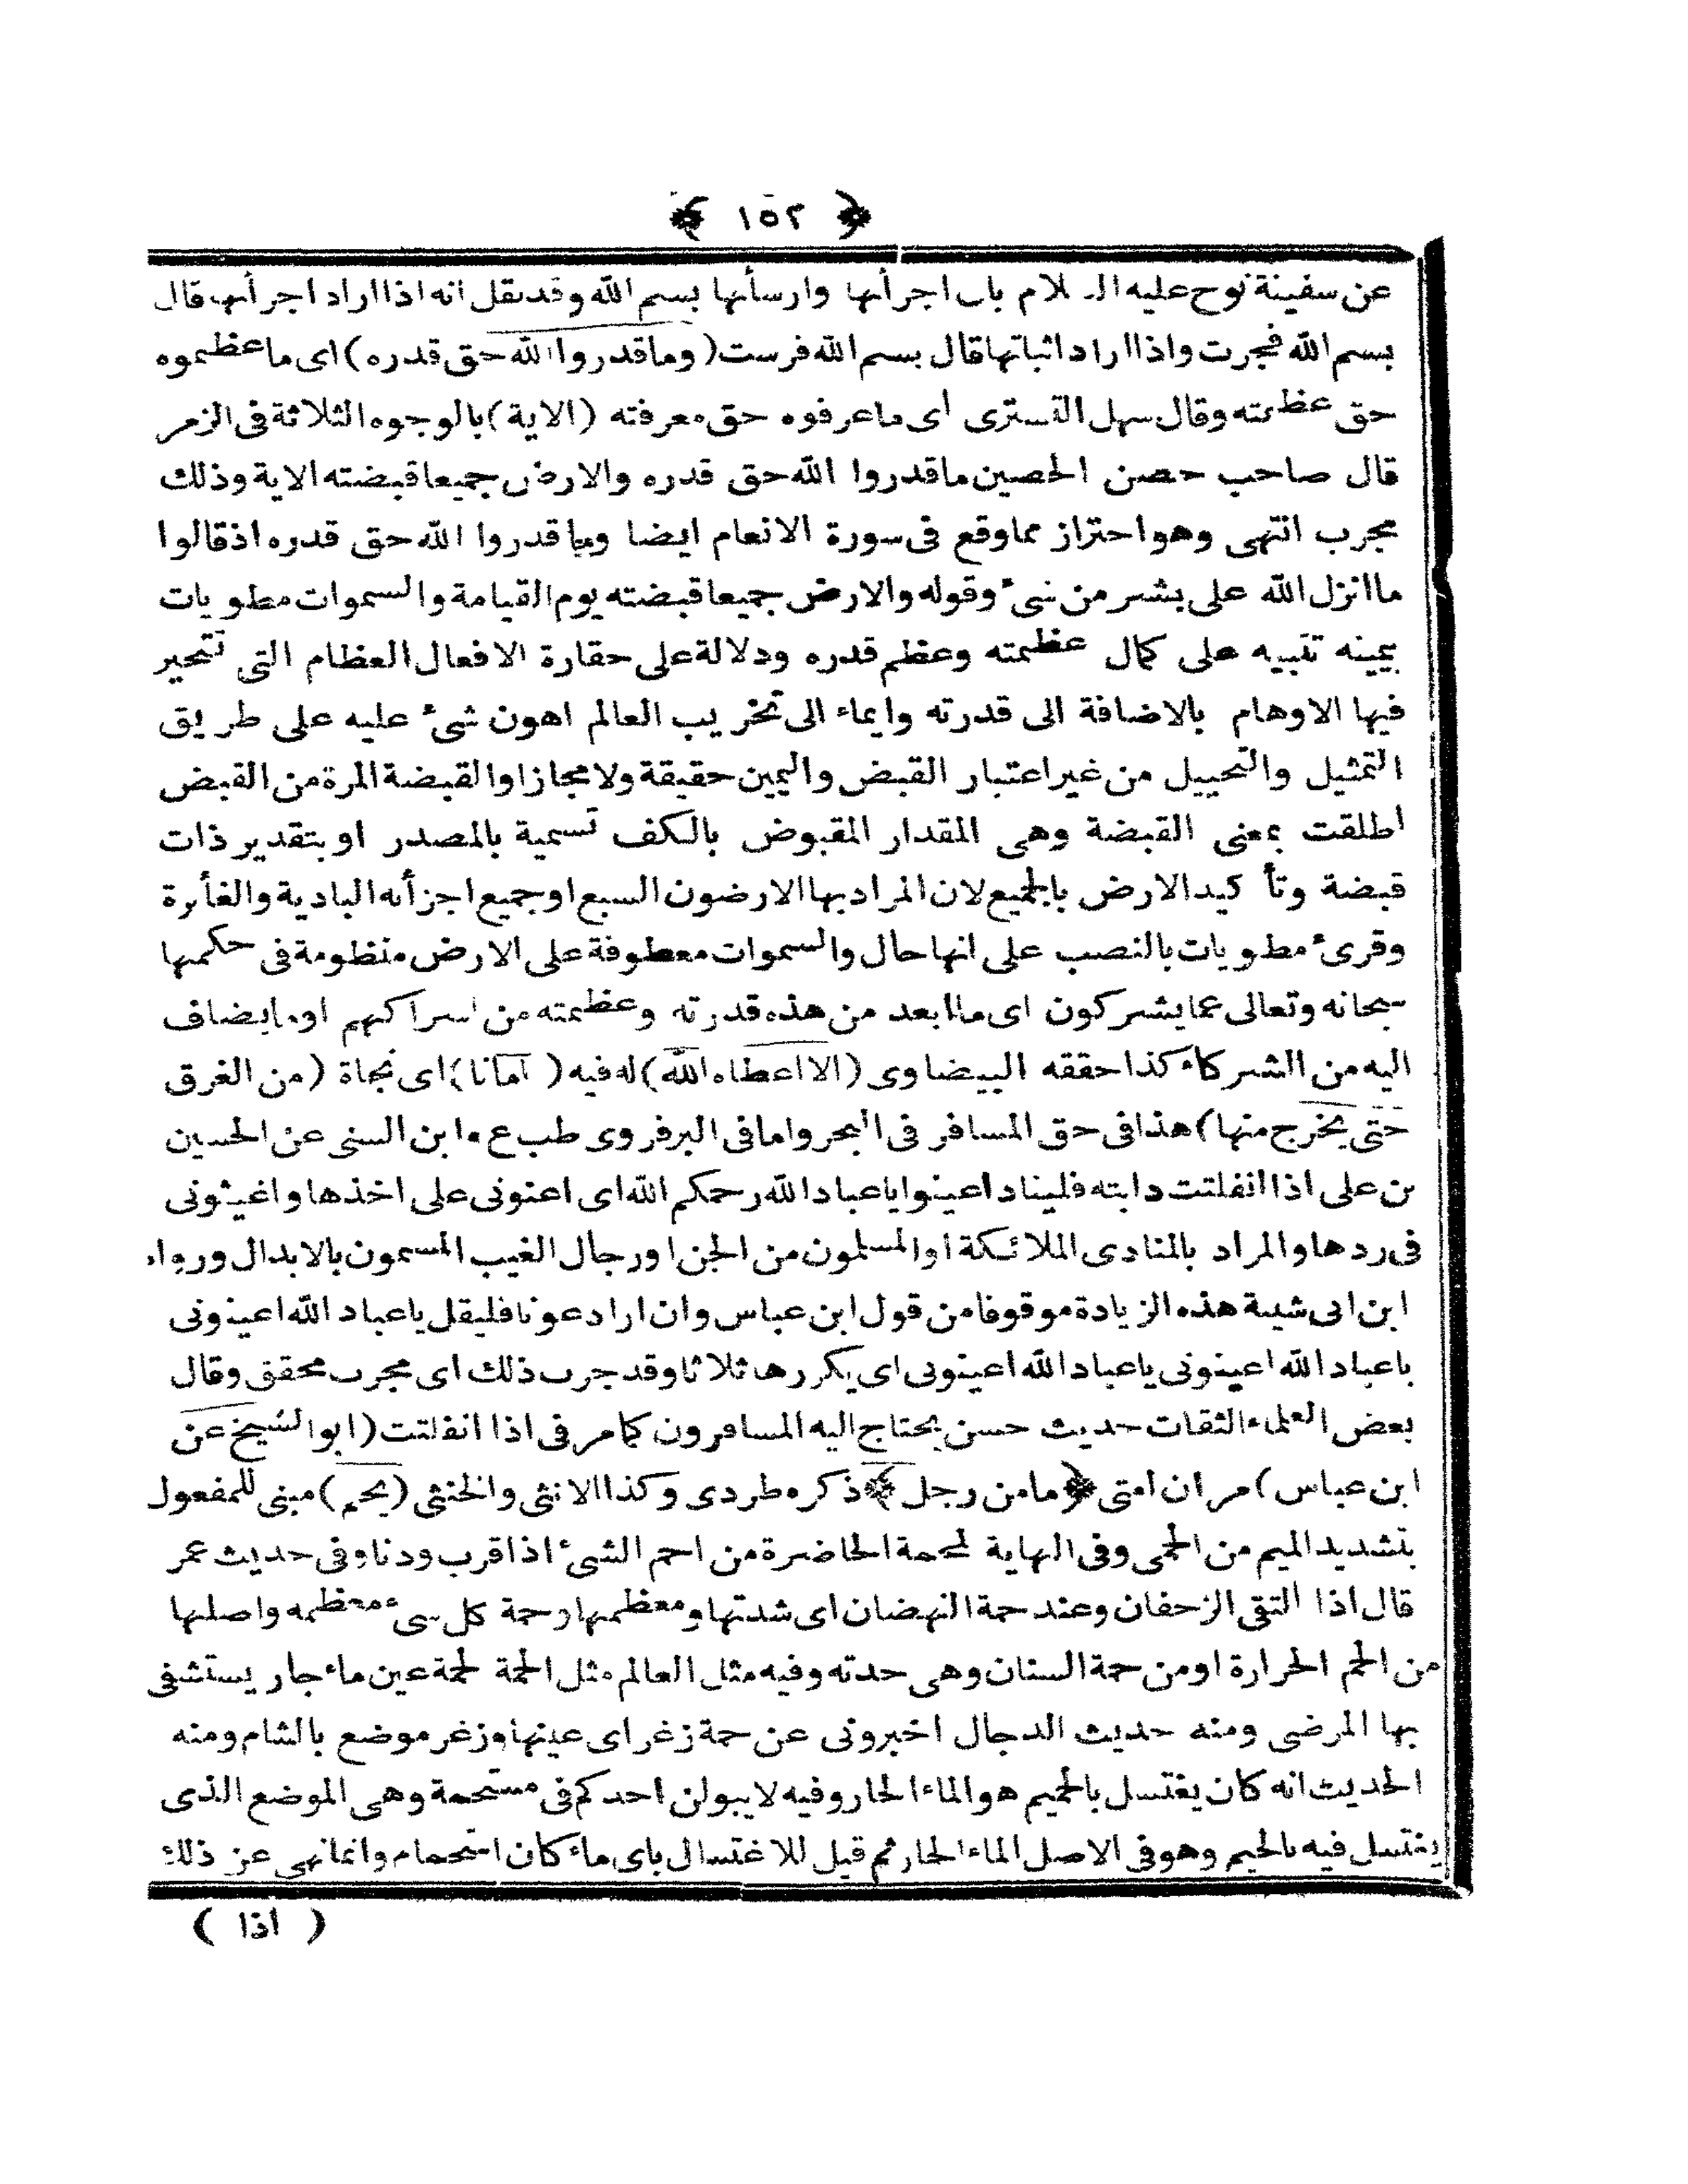 ﴿ ١٥٢ ﴾
عن سفينة نوح عليه السلام باب اجرأها وارسأها بسم الله وقد نقل انه اذا اراد اجرأها قال
بسم الله فجرت واذا اراد اثباتها قال بسم الله فرست (وما قدروا الله حق قدره) اى ما عظموه
حق عظمته وقال سهل التسترى اى ما عرفوه حق معرفته (الاية) بالوجوه الثلاثة فى الزمر
قال صاحب حصن الحصين ما قدروا الله حق قدره والارض جميعا قبضته الاية وذلك
مجرب انتهى وهو احتراز مما وقع فى سورة الانعام ايضا وما قدروا الله حق قدره اذ قالوا
ما انزل الله على بشر من شىء وقوله والارض جميعا قبضته يوم القيامة والسموات مطويات
بيمينه تنبيه على كمال عظمته وعظم قدره ودلالة على حقارة الافعال العظام التى تتحير
فيها الاوهام بالاضافة الى قدرته وايماء الى تخريب العالم اهون شىء عليه على طريق
التمثيل والتخييل من غير اعتبار القبض واليمين حقيقة ولا مجازا والقبضة المرة من القبض
اطلقت بمعنى القبضة وهى المقدار المقبوض بالكف تسمية بالمصدر او بتقدير ذات
قبضة وتأكيد الارض بالجميع لان المراد بها الارضون السبع او جميع اجزأئه البادية والغأئرة
وقرىء مطويات بالنصب على انها حال والسموات معطوفة على الارض منظومة فى حكمها
سبحانه وتعالى عما يشركون اى ما ابعد من هذه قدرته وعظمته من اسراكهم او ما يضاف
اليه من الشركاء كذا حققه البيضاوى (الا اعطاه الله) له فيه (امانا) اى نجاة (من الغرق
حتى يخرج منها) هذا فى حق المسافر فى البحر واما فى البر فروى طب ع ابن السنى عن الحسين
بن على اذا انفلتت دابته فليناد اعينوا يا عباد الله رحمكم الله اى اعنونى على اخذها واغيثونى
فى ردها والمراد بالمنادى الملائكة او المسلمون من الجن او رجال الغيب المسمون بالابدال ورواه
ابن ابى شيبة هذه الزيادة موقوفا من قول ابن عباس وان اراد عونا فليقل يا عباد الله اعينونى
يا عباد الله اعينونى يا عباد الله اعينونى اى يكررها ثلاثا وقد جرب ذلك اى مجرب محقق وقال
بعض العلماء الثقات حديث حسن يحتاج اليه المسافرون كما مر فى اذا انفلتت (ابو الشيخ عن
ابن عباس) مر ان امتى ﴿ما من رجل﴾ ذكره طردى وكذا الانثى والخنثى (يحم) مبنى للمفعول
بتشديد الميم من الحمى وفى النهاية لمحمة الحاضرة من احم الشىء اذا قرب ودنا وفى حديث عمر
قال اذا التقى الزحفان وعند حمة النهضان اى شدتها ومعظمها وحمة كل شىء معظمه واصلها
من الحم الحرارة او من حمة السنان وهى حدته وفيه مثل العالم مثل الحمة لحمة عين ماء جار يستشفى
بها المرضى ومنه حديث الدجال اخبرونى عن حمة زغر اى عينها وزغر موضع بالشام ومنه
الحديث انه كان يغتسل بالحميم هو الماء الحار وفيه لا يبولن احدكم فى مستحمة وهى الموضع الذى
يغتسل فيه بالحميم وهو فى الاصل الماء الحار ثم قيل للاغتسال باى ماء كان استحمام وانما نهى عن ذلك
( اذا )